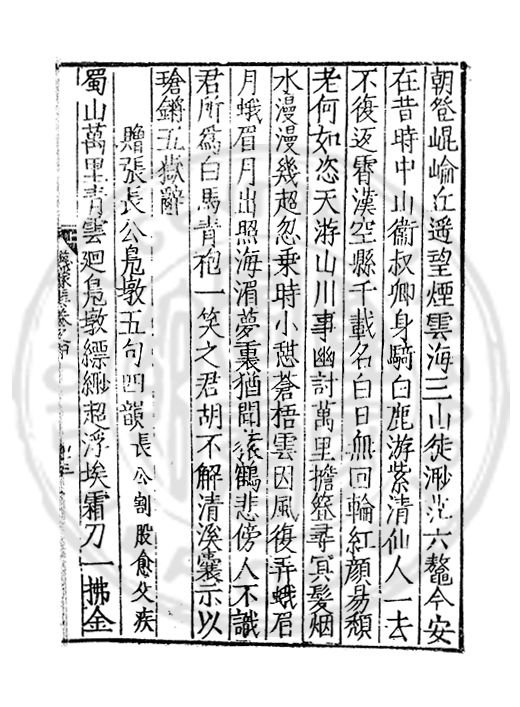 朝登崐崘丘遥望煙雲海三山徒渺茫六鼇今安
在昔時中山衞叔卿身騎白鹿游紫清仙人一去
不復返霄漢空縣千載名白日無回輪紅顔易頽
老何如恣天游山川事幽討萬里擔簦尋冥髮烟
水漫漫幾超忽乗時小憇蒼梧雲因風復弄蛾眉
月蛾眉月出照海湄夢裏猶聞猿鶴悲傍人不識
君所爲白馬青袍一笑之君胡不解清溪囊示以
瑲鏘五嶽辭
贈張長公鳧墩五句四韻長公割股愈父疾
蜀山萬里青雲廻鳧墩縹緲超浮埃霜刀一拂金